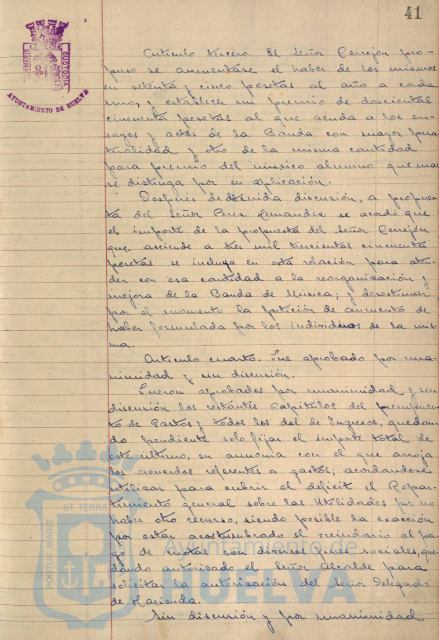 41
AYUNTAMIENTO DE HUELVA
Artículo tercero. El Señor Cerrejón pro-
puso se aumentase el haber de los mismos
en setenta y cinco pesetas al año a cada
uno, y establecer un premio de doscientas
cincuenta pesetas al que acuda a los en-
sayos y actos de la Banda con mayor pun-
tualidad y otro de la misma cantidad
para premio del musico alumno que mas
se distinga por su aplicación.
Después de debida discusión, a propues-
ta del Señor Perez Hernandez se acordó que
el importe de la propuesta del Señor Cerrejón
que asciende a tres mil trescientas cincuenta
pesetas se incluya en esta relación para aten-
der con esa cantidad a la reorganización y
mejora de la Banda de Música; y desestimar
por el momento la petición de aumento de
haber formulada por los individuos de la mis-
ma.
Artículo cuarto. Fue aprobado por una-
nimidad y sin discusión.
Fueron aprobados por unanimidad y sin
discusión los restantes Capítulos del presupues-
to de Gastos y todos los del de Ingresos, quedan-
do pendiente solo fijar el importe total de
este ultimo, en armonia con el que arroja
los acuerdos referentes a gastos; acordandose
utilizar para cubrir el deficit el Repar-
timiento general sobre las Utilidades por no
haber otro recurso, siendo posible la exacción
por estar acostumbrado el vecindario al pa-
go de cuotas con diversos fines sociales, que-
dando autorizado el Señor Alcalde para
solicitar la autorización del Señor Delegado
de Hacienda.
Sin discusión y por unanimidad